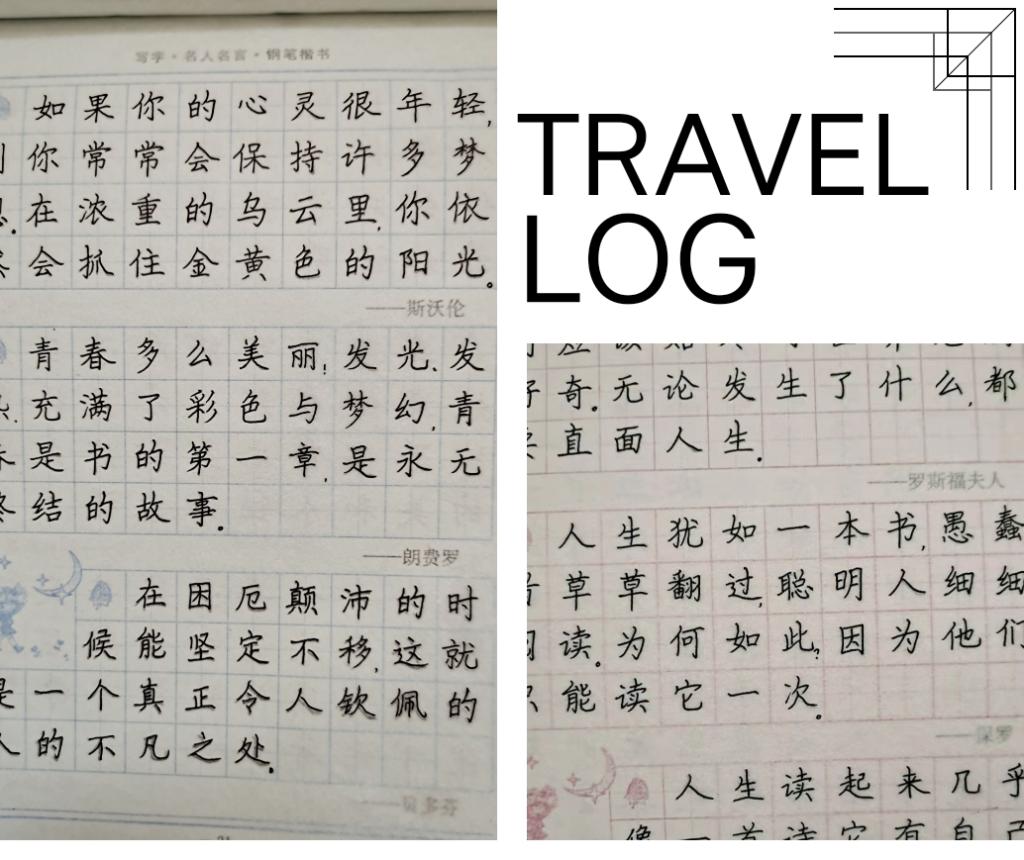 写字·名人名言·钢笔楷书
如果你的心灵很年轻,
你常常会保持许多梦
在浓重的乌云里,你依
会抓住金黄色的阳光。
——斯沃伦
青春多么美丽!发光、发
充满了彩色与梦幻,青
是书的第一章,是永无
结的故事.
——朗费罗
在困厄颠沛的时
候能坚定不移,这就
是一个真正令人钦佩的
人的不凡之处.
——贝多芬
TRAVEL
LOG
奇.无论发生了什么,都
直面人生.
——罗斯福夫人
人生犹如一本书,愚蠢
草草翻过,聪明人细细
读.为何如此?因为他们
只能读它一次.
——保罗
人生读起来几乎
像一首诗它有自己